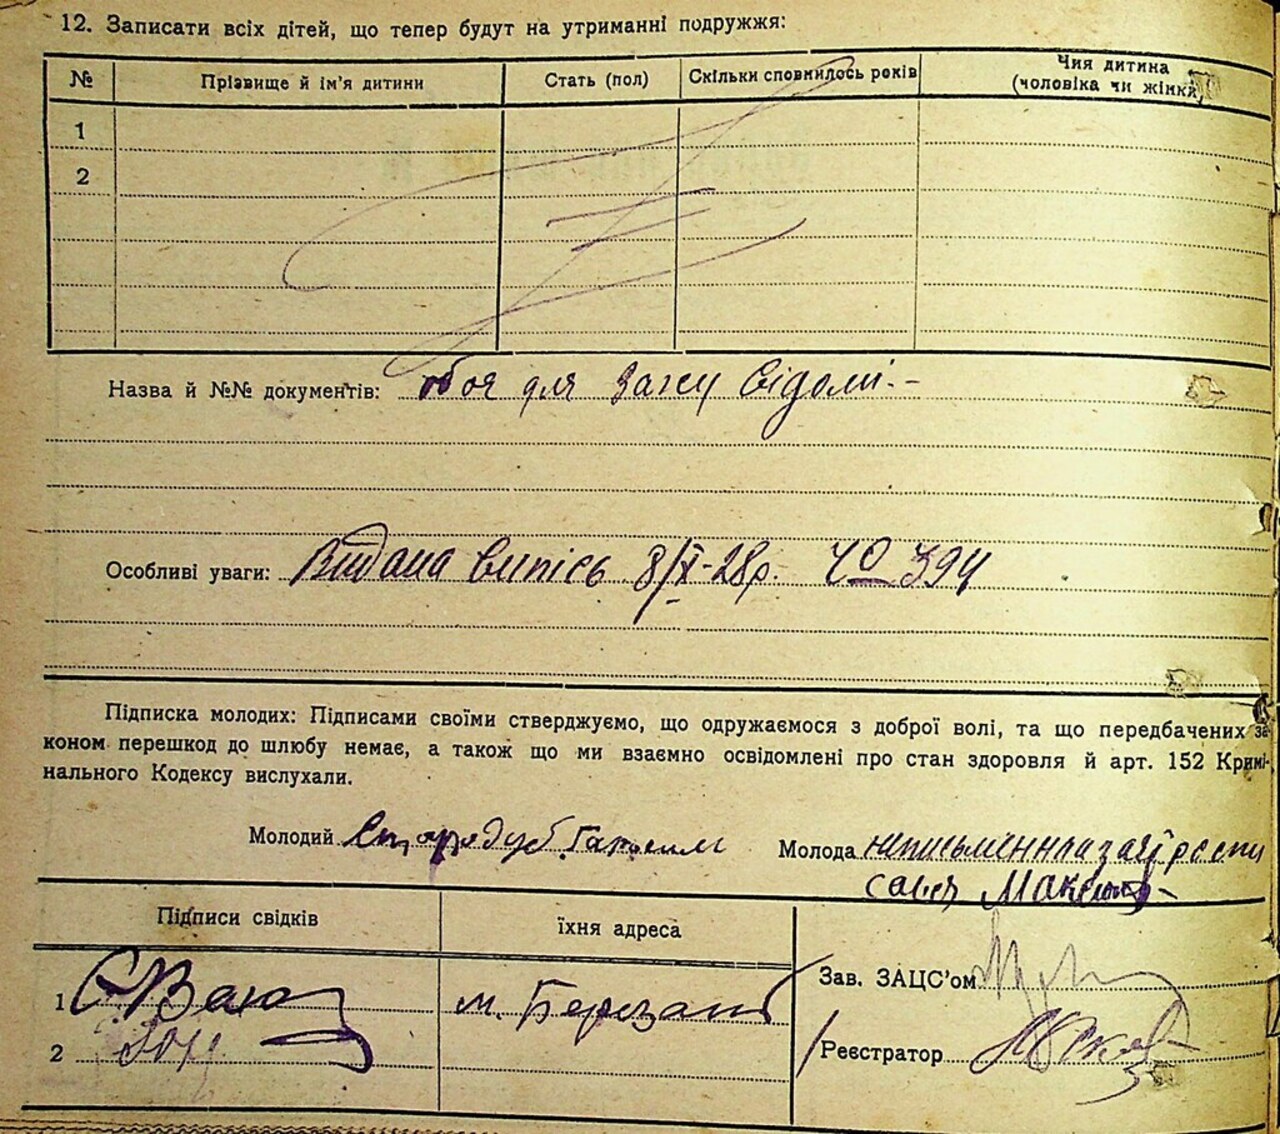 12. Записати всіх дітей, що тепер будут на утриманні подружжя:
№ Прізвище й ім'я дитини Стать (пол) Скільки сповнилось років Чия дитина (чоловіка чи жінки)
1
2
Назва й №№ документів: обоя для Загсу відомі.-
Особливі уваги: Видана випісь 8/X-28р. ЧО 394
Підписка молодих: Підписами своїми стверджуємо, що одружаємося з доброї волі, та що передбачених за-
коном перешкод до шлюбу немає, а також що ми взаємно освідомлені про стан здоровля й арт. 152 Кримі-
нального Кодексу вислухали.
Молодий Стародуб Молода неписьменна за її
Підписи свідків їхня адреса
Зав. ЗАЦС'ом
1 м. Березань
2 Реєстратор